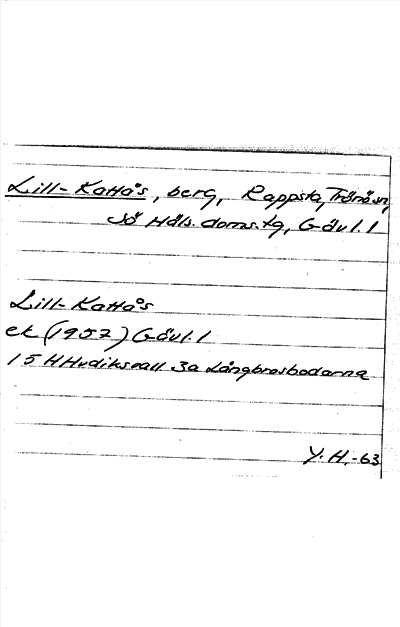 Lill-Kattås, berg, Rappsta, Trönö sn,
Sö Häls. doms. tg, Gävl. l
Lill-Kattås
ek (1957) Gävl. l
15 H Hudiksvall 3a Långbrosbodarna
Y. H. -63